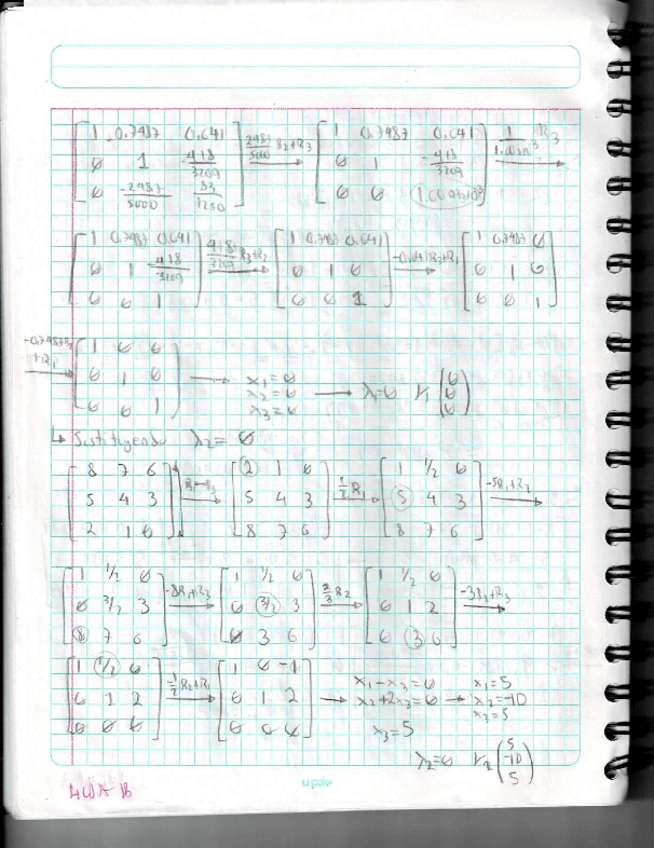 [1 0.7487 0.641; 0 1 -418/3209; 0 -2487/5000 83/1250] 2487/5000 R2+R3 → [1 0.7487 0.641; 0 1 -418/3209; 0 0] R3 →
[1 0.7487 0.641; 0 1 -418/3209; 0 0 1] 418/3209 R3+R2 → [1 0.7487 0.641; 0 1 0; 0 0 1] -0.641R3+R1 → [1 0.7487 0; 0 1 0; 0 0 1]
-0.7487R2+R1 → [1 0 0; 0 1 0; 0 0 1] → x1=0 x2=0 x3=0 → λ1=0 V1 (0 0 0)
↳ Sustituyendo λ2= 0
[8 7 6; 5 4 3; 2 1 0] → [2 1 0; 5 4 3; 8 7 6] 1/2 R1 → [1 1/2 0; 5 4 3; 8 7 6] -5R1+R2 →
[1 1/2 0; 0 3/2 3; 8 7 6] -8R1+R3 → [1 1/2 0; 0 3/2 3; 0 3 6] 2/3 R2 → [1 1/2 0; 0 1 2; 0 3 6] -3R2+R3 →
[1 1/2 0; 0 1 2; 0 0 0] -1/2 R2+R1 → [1 0 -1; 0 1 2; 0 0 0] → x1-x3=0 x2+2x3=0 x3=5 → x1=5 x2=-10 x3=5
λ2=0 V2 (5 -10 5)